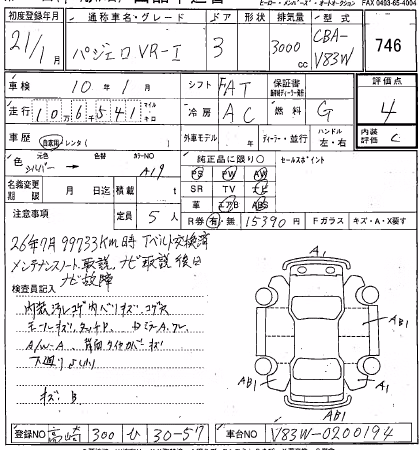 ヒーロー・メンバーズ・オートオークション FAX 0493-65-4004
初度登録年月 通称車名・グレード ドア 形状 排気量 型式
21/1月 パジェロ VR-I 3 3000cc CBA-V83W 746
車検 10年1月 シフト FAT 保証書 評価点
走行 10万6千541 マイル キロ 冷房 AC 燃料 G 4
車歴 自家用 レンタ( ) 外車モデル 年 ディーラー・並行 ハンドル 左・右 内装評価 C
色 元色 シルバー 色替 カラーNO A19 純正品に限り○ セールスポイント
PS PW AW
名義変更期限 月 日迄 積載 t SR TV ナビ
革 エアB ABS
注意事項 定員 5人 R券 有・無 15390円 Fガラス キズ・A・X要す
26年7月 99733Km時 Tベルト交換済
メンテナンスノート、取説、ナビ取説 後日
ナビ故障
検査員記入
内装汚レコゲ内ハリキズ
モールキズ
A/W-A
下廻り
キズ B
A1
AB1
A1
AB1
AB1
登録NO 高崎 300 ひ 30-57 車台NO V83W-0200194